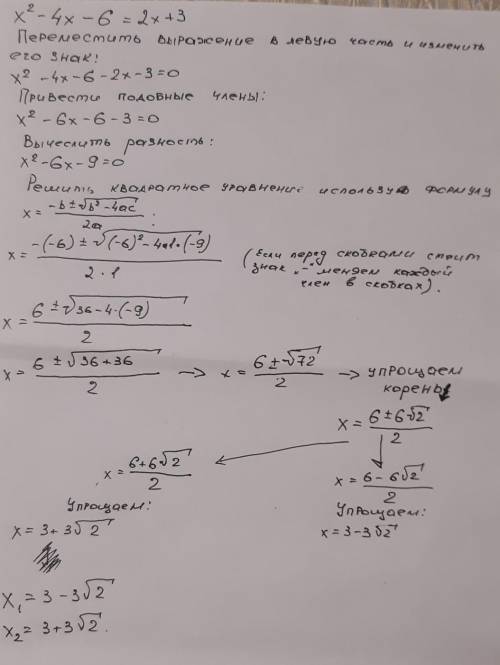 x² - 4x - 6 = 2x + 3
Переместить выражение в левую часть и изменить
его знак:
x² - 4x - 6 - 2x - 3 = 0
Привести подобные члены:
x² - 6x - 6 - 3 = 0
Вычеслить разность:
x² - 6x - 9 = 0
Решить квадратное уравнение используя формулу
x = (-b ± √(b² - 4ac)) / 2a :
x = (-(-6) ± √((-6)² - 4·1·(-9))) / (2·1) (Если перед скобками стоит
знак „-" меняем каждый
член в скобках).
x = (6 ± √(36 - 4·(-9))) / 2
x = (6 ± √(36 + 36)) / 2 → x = (6 ± √72) / 2 → упрощаем
корень
x = (6 ± 6√2) / 2
x = (6 + 6√2) / 2
x = (6 - 6√2) / 2
Упрощаем:
x = 3 + 3√2
Упрощаем:
x = 3 - 3√2
x₁ = 3 - 3√2
x₂ = 3 + 3√2.